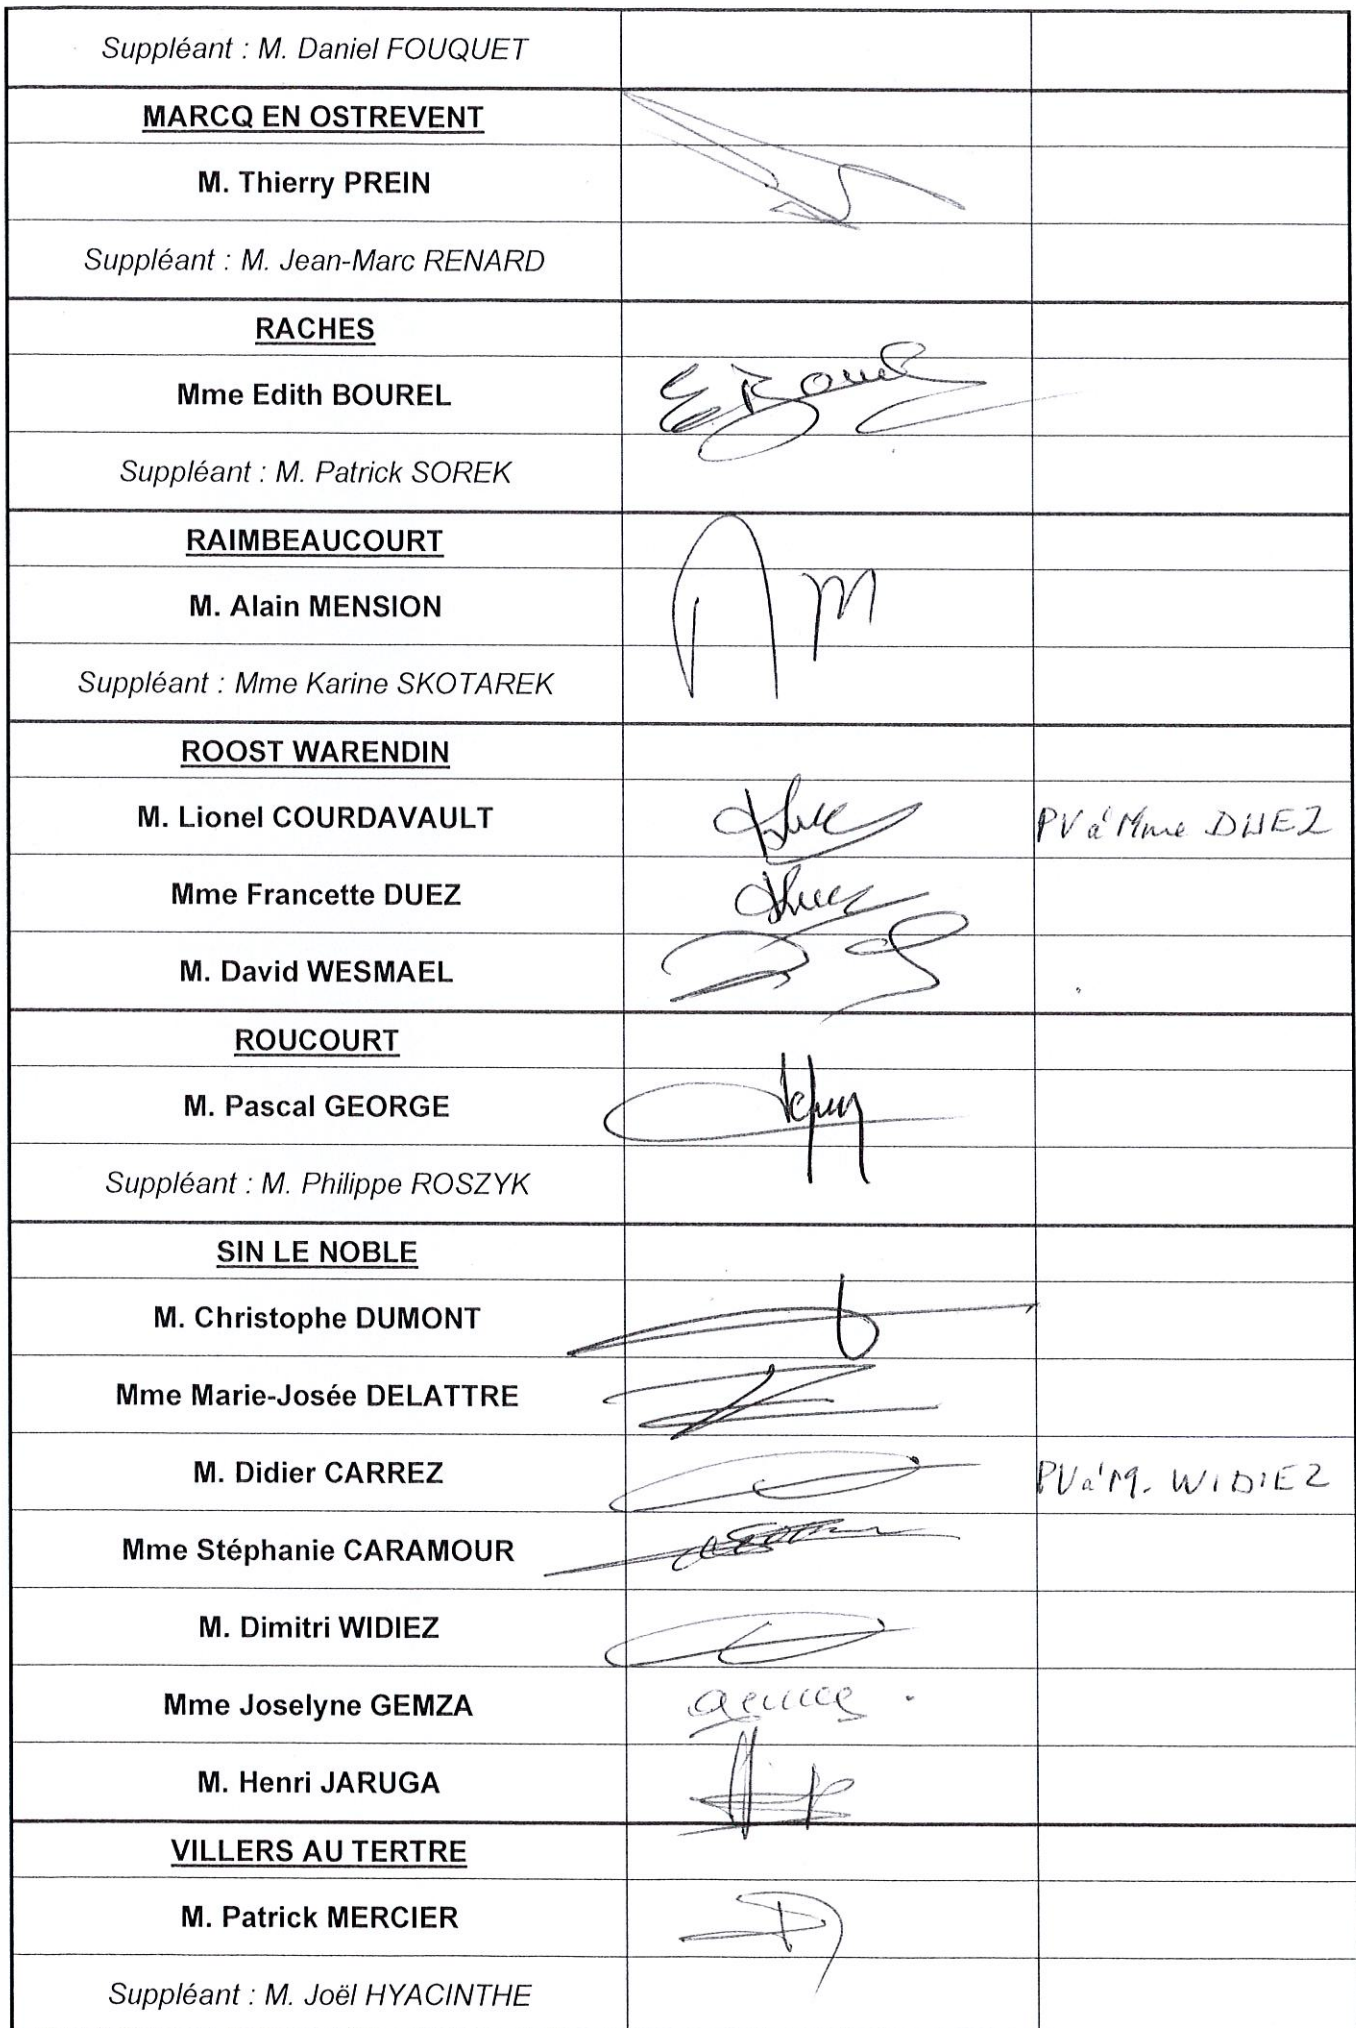 Suppléant : M. Daniel FOUQUET
MARCQ EN OSTREVENT
M. Thierry PREIN
Suppléant : M. Jean-Marc RENARD
RACHES
Mme Edith BOUREL
E Bourel
Suppléant : M. Patrick SOREK
RAIMBEAUCOURT
M. Alain MENSION
A M
Suppléant : Mme Karine SKOTAREK
ROOST WARENDIN
M. Lionel COURDAVAULT PV à Mme DUEZ
Mme Francette DUEZ
M. David WESMAEL
ROUCOURT
M. Pascal GEORGE
Suppléant : M. Philippe ROSZYK
SIN LE NOBLE
M. Christophe DUMONT
Mme Marie-Josée DELATTRE
M. Didier CARREZ PV à M. WIDIEZ
Mme Stéphanie CARAMOUR
M. Dimitri WIDIEZ
Mme Joselyne GEMZA
M. Henri JARUGA
VILLERS AU TERTRE
M. Patrick MERCIER
Suppléant : M. Joël HYACINTHE